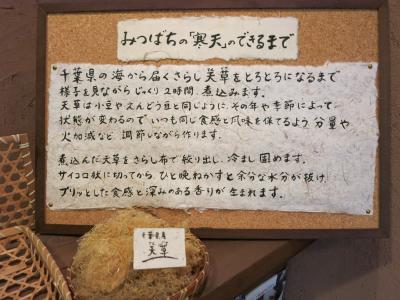 みつばちの「寒天」のできるまで
千葉県の海から届くさらし天草をとろとろになるまで
様子を見ながらじっくり2時間、煮込みます。
天草は小豆やえんどう豆と同じように、その年や季節によって
状態が変わるのでいつも同じ食感と風味を保てるよう分量や
火加減など、調節しながら作ります。
煮込んだ天草をさらし布で絞り出し、冷まし固めます。
サイコロ状に切ってから、ひと晩ねかすと余分な水分が抜け
プリッとした食感と深みのある香りが生まれます。
千葉県産
天草